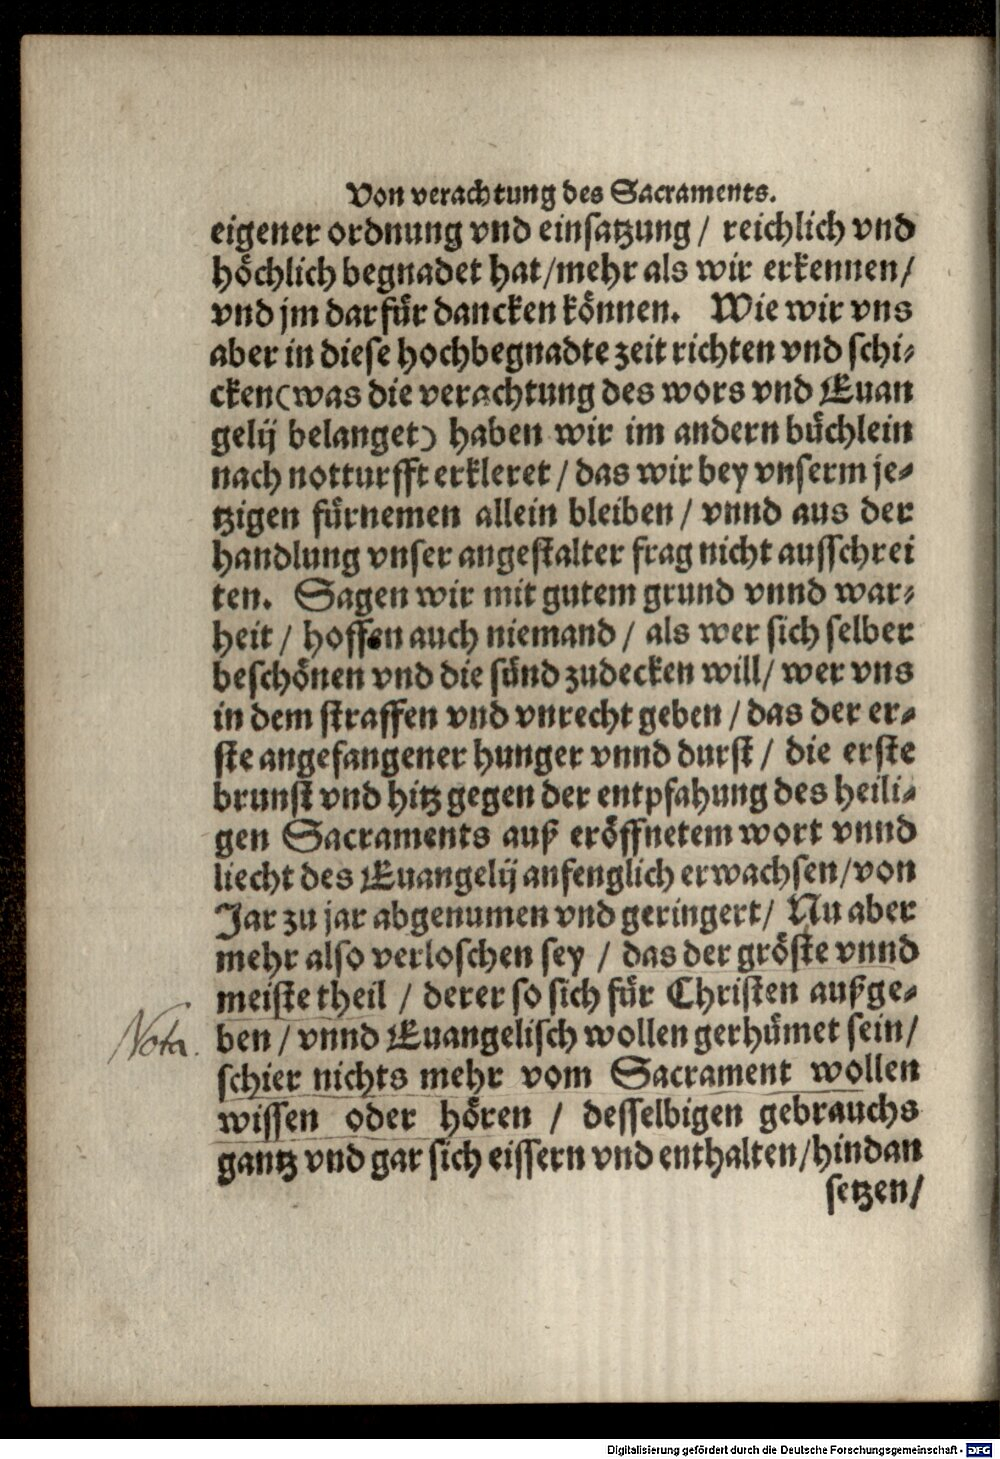 Von verachtung des Sacraments.
eigener ordnung vnd einsatzung / reichlich vnd
höchlich begnadet hat/mehr als wir erkennen/
vnd jm darfür dancken können. Wie wir vns
aber in diese hochbegnadte zeit richten vnd schi-
cken(was die verachtung des wors vnd Euan
gelij belanget) haben wir im andern büchlein
nach notturfft erkleret / das wir bey vnserm je-
tzigen fürnemen allein bleiben / vnnd aus der
handlung vnser angestalter frag nicht ausschrei
ten. Sagen wir mit gutem grund vnnd war-
heit / hoffen auch niemand / als wer sich selber
beschönen vnd die sünd zudecken will/ wer vns
in dem straffen vnd vnrecht geben / das der er-
ste angefangener hunger vnnd durst / die erste
brunst vnd hitz gegen der entpfahung des heili-
gen Sacraments auß eröffnetem wort vnnd
liecht des Euangelij anfenglich erwachsen/von
Jar zu jar abgenumen vnd geringert/ Nu aber
mehr also verloschen sey / das der gröste vnnd
meiste theil / derer so sich für Christen außge-
Nota. ben / vnnd Euangelisch wollen gerhümet sein/
schier nichts mehr vom Sacrament wollen
wissen oder hören / desselbigen gebrauchs
gantz vnd gar sich eissern vnd enthalten/hindan
setzen/
Digitalisierung gefördert durch die Deutsche Forschungsgemeinschaft - DFG